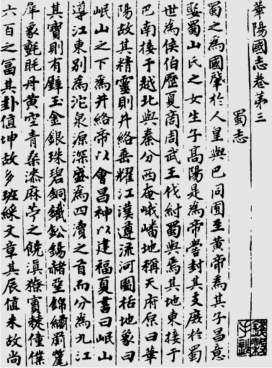 華陽國志卷第三
蜀志
蜀之為國肇於人皇與巴同囿至黃帝為其子昌意
娶蜀山氏之女生子高陽是為帝嚳封其支庶於蜀
世為侯伯歷夏商周武王伐紂蜀與焉其地東接于
巴南接于越北與秦分西奄峨嶓地稱天府原曰華
陽故其精靈則井絡垂耀江漢遵流河圖括地象曰
岷山之下為井絡帝以會昌神以建福夏書曰岷山
導江東別為沱泉源深盛為四瀆之首而分為九江
其寶則有璧玉金銀珠碧銅鐵鉛錫赭堊錦繡罽氂
犀象氈毦丹黃空青桑漆麻紵之饒滇獠賨僰僮僕
六百之富其卦值坤故多班綵文章其辰值未故尚